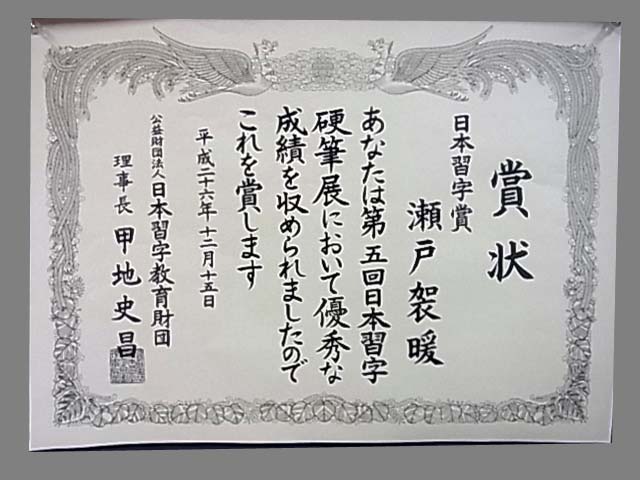 賞状
日本習字賞
瀬戸袈暖
あなたは第五回日本習字
硬筆展において優秀な
成績を収められましたので
これを賞します
平成二十六年十二月十五日
公益財団法人日本習字教育財団
理事長 甲地史昌